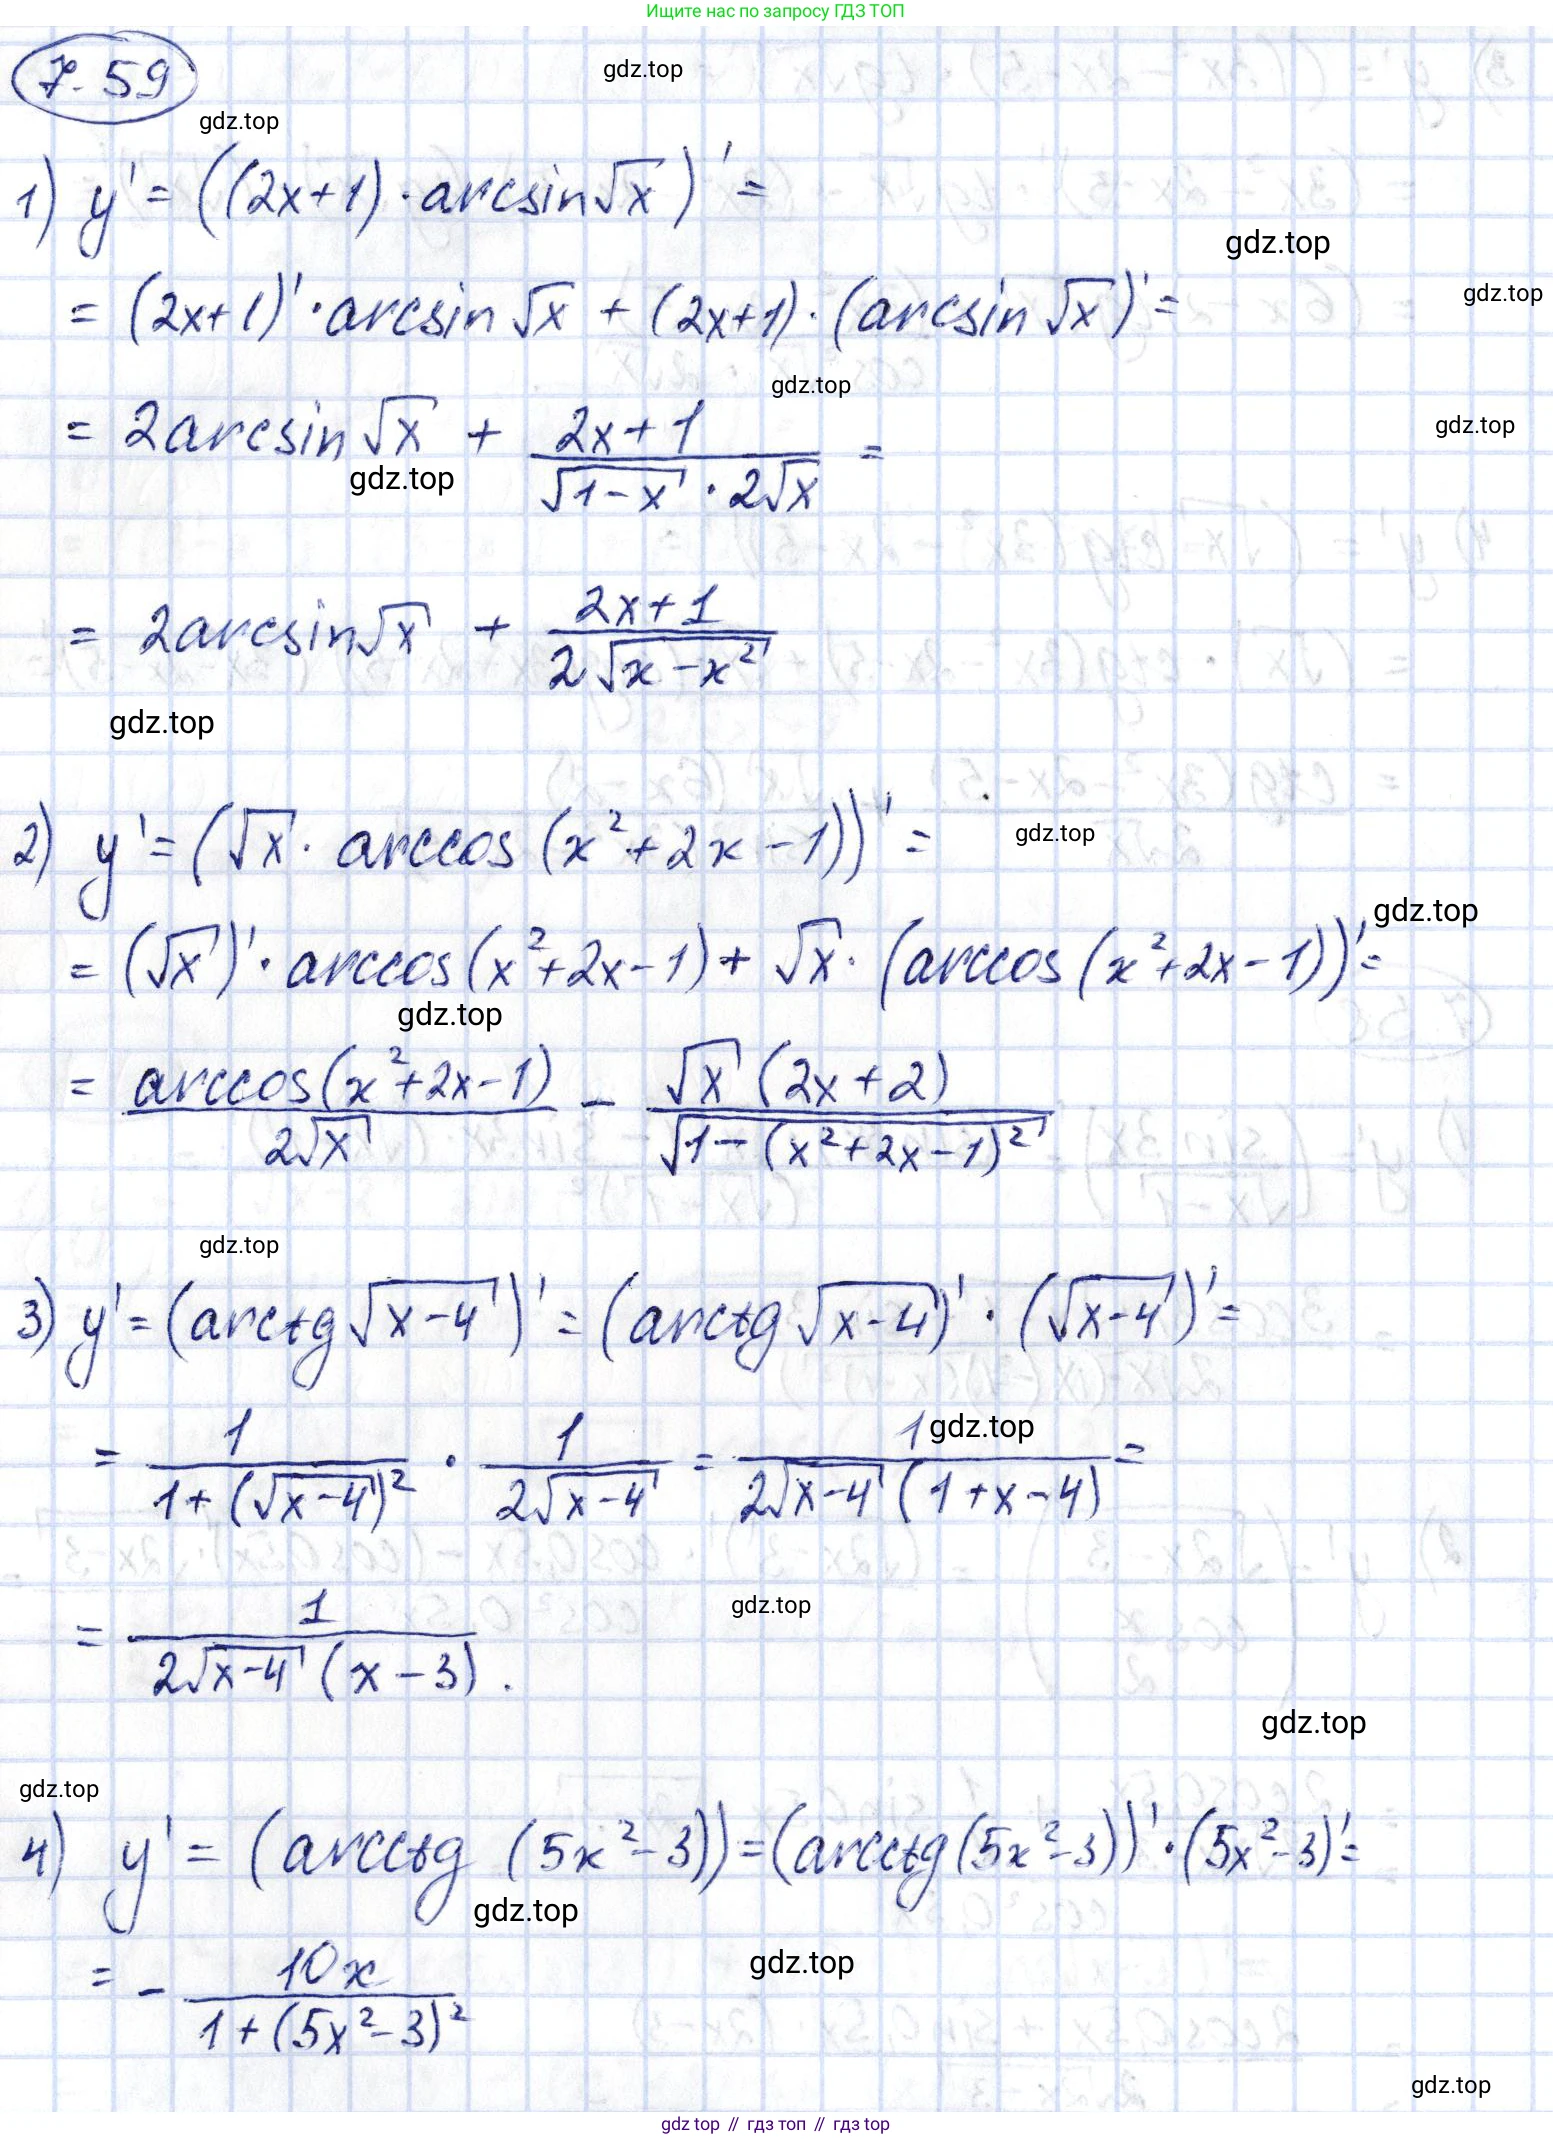 Ищите нас по запросу ГДЗ ТОП
7.59
gdz.top
gdz.top
1) y' = ((2x+1)·arcsin√x)' =
gdz.top
= (2x+1)'·arcsin√x + (2x+1)·(arcsin√x)' =
gdz.top
gdz.top
= 2arcsin√x + (2x+1)/(√(1-x)·2√x) =
gdz.top
gdz.top
= 2arcsin√x + (2x+1)/(2√(x-x²))
gdz.top
2) y' = (√x·arccos(x²+2x-1))' =
gdz.top
gdz.top
= (√x)'·arccos(x²+2x-1) + √x·(arccos(x²+2x-1))' =
gdz.top
= arccos(x²+2x-1)/(2√x) - √x(2x+2)/√(1-(x²+2x-1)²)
gdz.top
3) y' = (arctg√(x-4))' = (arctg√(x-4))'·(√(x-4))' =
= 1/(1+(√(x-4))²) · 1/(2√(x-4)) = 1/(2√(x-4)(1+x-4)) =
gdz.top
= 1/(2√(x-4)(x-3)).
gdz.top
gdz.top
gdz.top
4) y' = (arcctg(5x²-3)) = (arcctg(5x²-3))'·(5x²-3)' =
gdz.top
= - 10x/(1+(5x²-3)²)
gdz.top
gdz.top
gdz top // гдз топ // гдз top